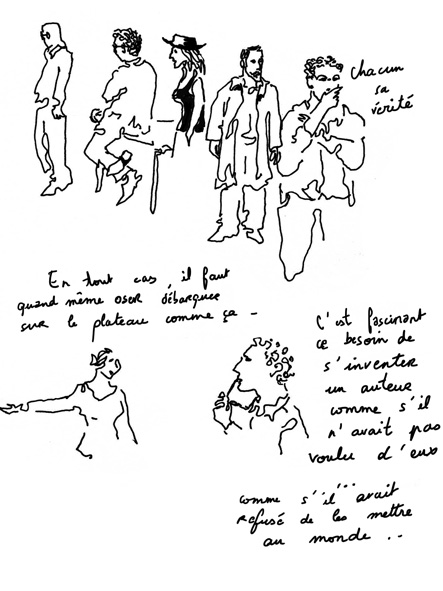 chacun
sa
vérité
En tout cas, il faut
quand même oser débarquer
sur le plateau comme ça -
C'est fascinant
ce besoin de
s'inventer
un auteur
comme s'il
n'avait pas
voulu d'eux
comme s'il... avait
refusé de les mettre
au monde ..